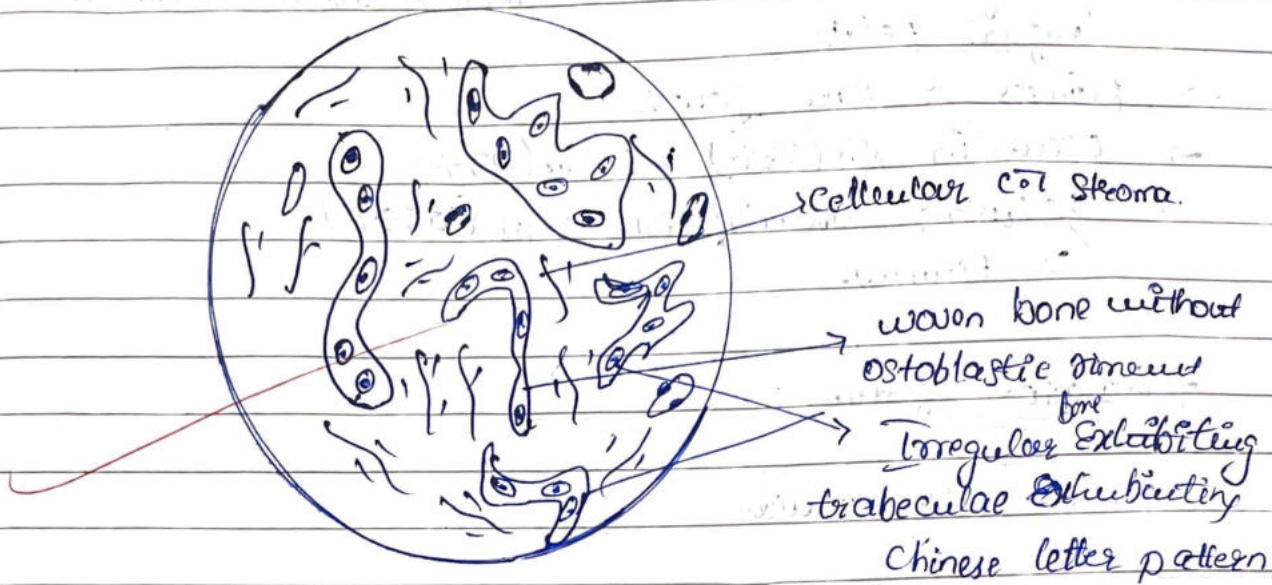 Cellular C.T Stroma.
woven bone without
ostoblastic
bone
Irregular Exhibiting
trabeculae
Chinese letter pattern